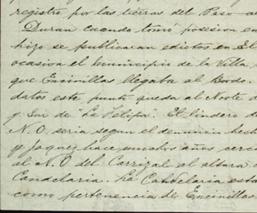 registro por las tierras del Paso
Duran cuando tomó posesion en
hizo se publicaran edictos en El
ocasiva el municipio de la Villa
que Encinillas llegaba al Borde.
datos este punto queda al Norte
y Sur de La Felipa. El lindero d
N.O. seria segun el denuncio hech
y Jaquez hace muchos años, cerc
al N.O. del Carrizal al altura d
Candelaria. La Candelaria esta
como pertenencia de Encinillas